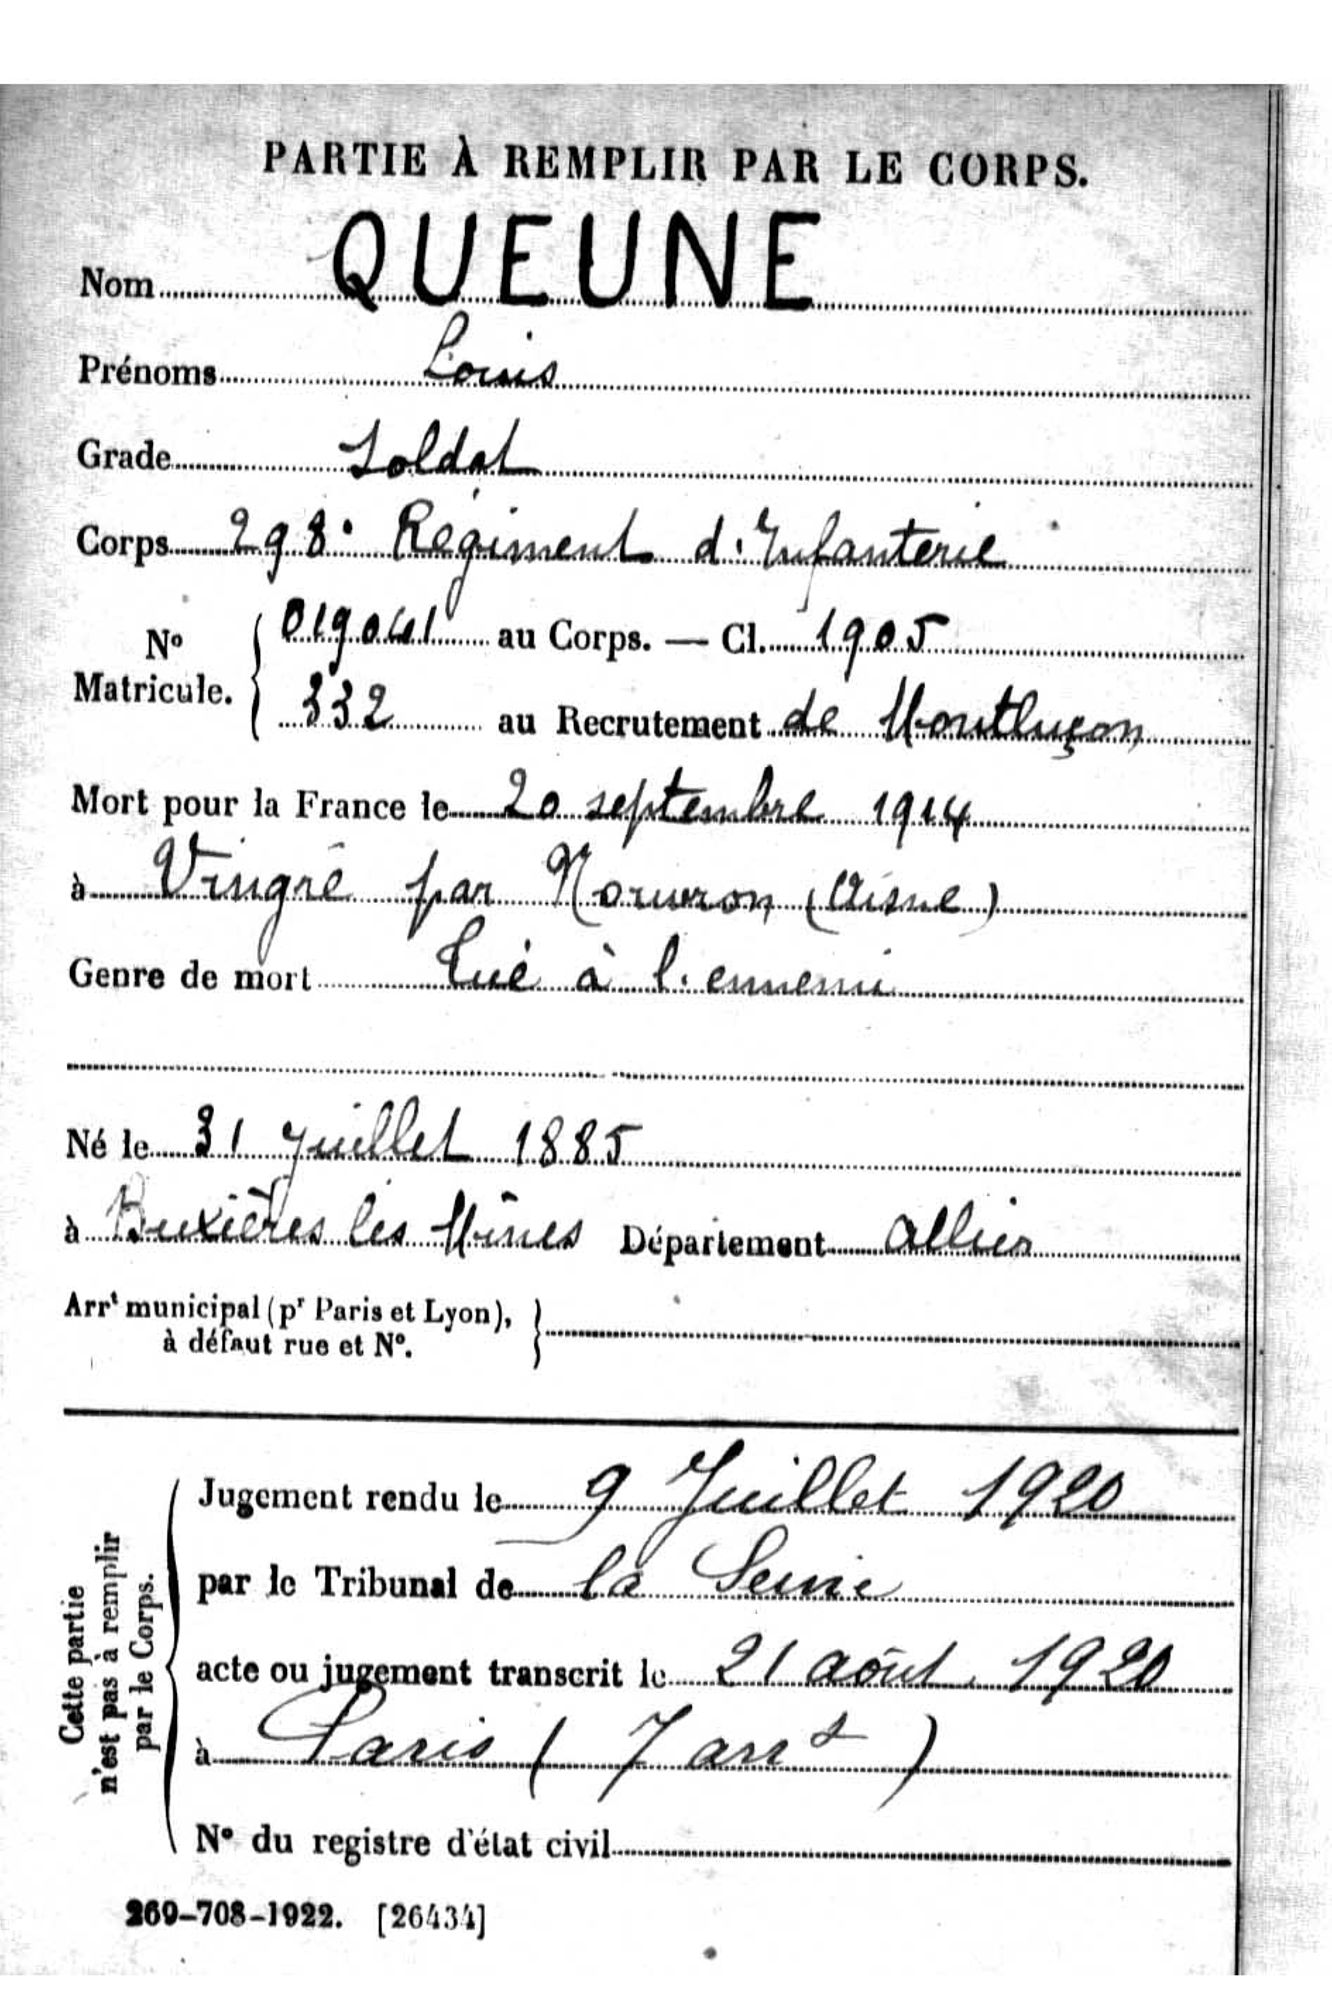 PARTIE À REMPLIR PAR LE CORPS.
Nom QUEUNE
Prénoms Louis
Grade Soldat
Corps 298e Régiment d'Infanterie
No Matricule. { 019041 au Corps. — Cl. 1905
332 au Recrutement de Montluçon
Mort pour la France le 20 septembre 1914
à Vingré par Nouvron (Aisne)
Genre de mort Tué à l'ennemi
Né le 31 Juillet 1885
à Buxières les Mines Département Allier
Arrt municipal (pr Paris et Lyon), }
à défaut rue et No.
Cette partie
n'est pas à remplir
par le Corps.
Jugement rendu le 9 Juillet 1920
par le Tribunal de la Seine
acte ou jugement transcrit le 21 août 1920
à Paris ( 7 arrt )
No du registre d'état civil
269-708-1922. [26434]